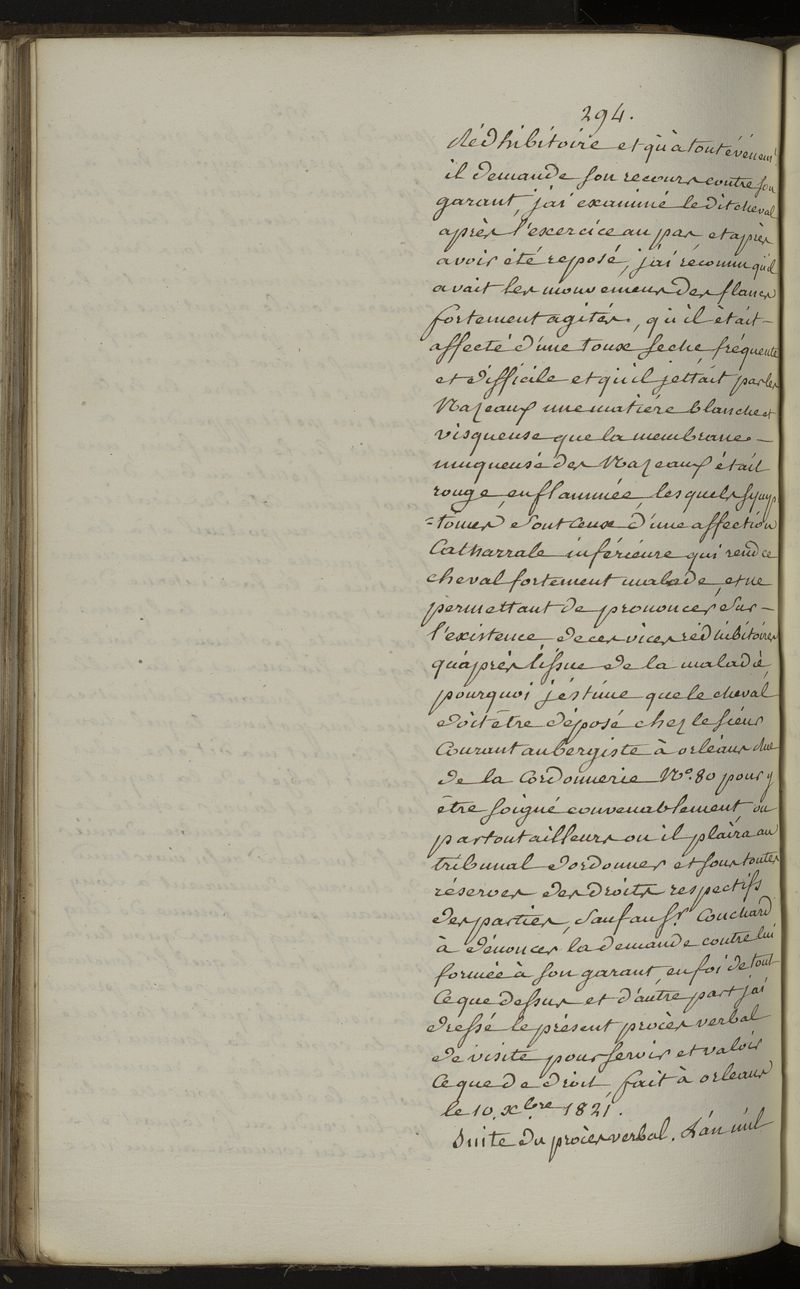 294.
rédhibitoire et qu'a tout événemt
il demande son recours contre son
garant, j'ai examiné le dit cheval
après l'exercice au pas, et après
avoir été reposé, j'ai reconnu qu'il
avait les mouvemens des flancs
fortement agités, qu'il était –
affecté d'une toux seche, fréquente
et difficile et qu'il jettait par les
Nazeaux une matière blanche et
visqueuse que la membrane –
muqueuse des Nazeaux était
rouge, enflammée, lesquels symp
=tômes sont ceux d'une affection
Catharrale inférieure qui rend ce
cheval fortement malade, et ne
permettant de prononcer sur –
l'existence de ces vices rédhibitoires
qu'après l'issue de la maladie,
pourquoi j'estime que le cheval
doit être déposé chez le sieur
Courant aubergiste à orléans rue
de la Cordonnerie No. 80 pour y
être soigné convenablement ou
partout ailleurs ou il plaira au
tribunal d'ordonner et sous toutes
réserves des droits respectifs
des parties, sauf au Sr. Couchard
à dénoncer la demande contre lui
formée à son garant, en foi de tout
Ce que dessus et d'autre part j'ai
dressé le présent procès verbal
de visite pour servir et valoir
Ce que de droit, fait à orléans
le 10. xbre 1821.
Suite du procès verbal. L'an mil